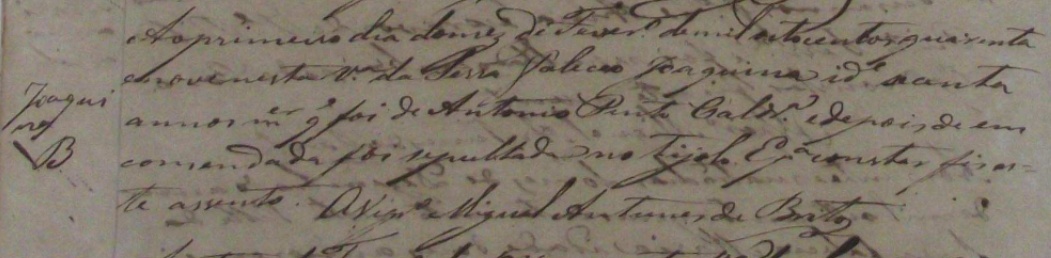 Ao primeiro dia do mez de Fever.º de mil oitocentos quarenta
e nove nesta V.ª da Serra faleceo Joaquina id.e
Joaqui
na
B.
annos m.er q̃ foi de Antonio Pinto Cald.ª e depois de em
comendada foi sepultada no Tijolo. E p.ª constar fis es-
te assento. O Vig.º Miguel Antunes de Brito